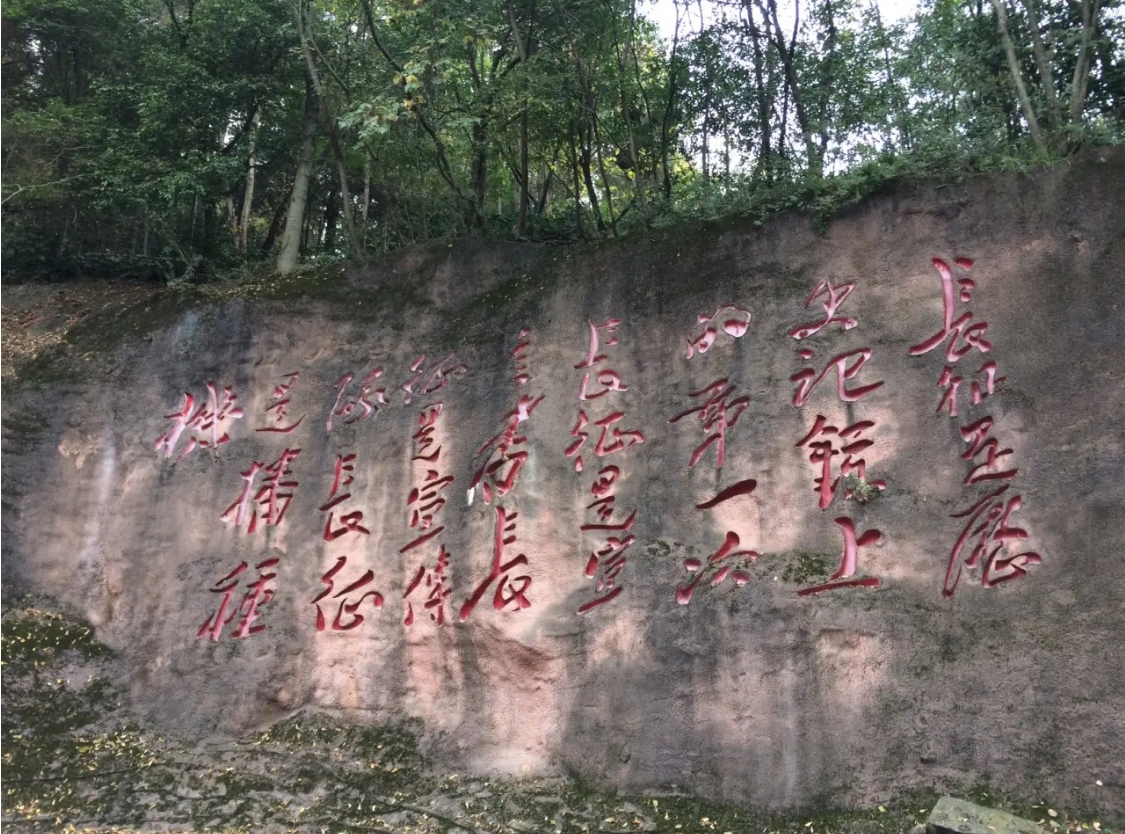 長征是歷
史记錄上
的第一次
長征是宣
言書長
征是宣傳
隊長征
是播種
機